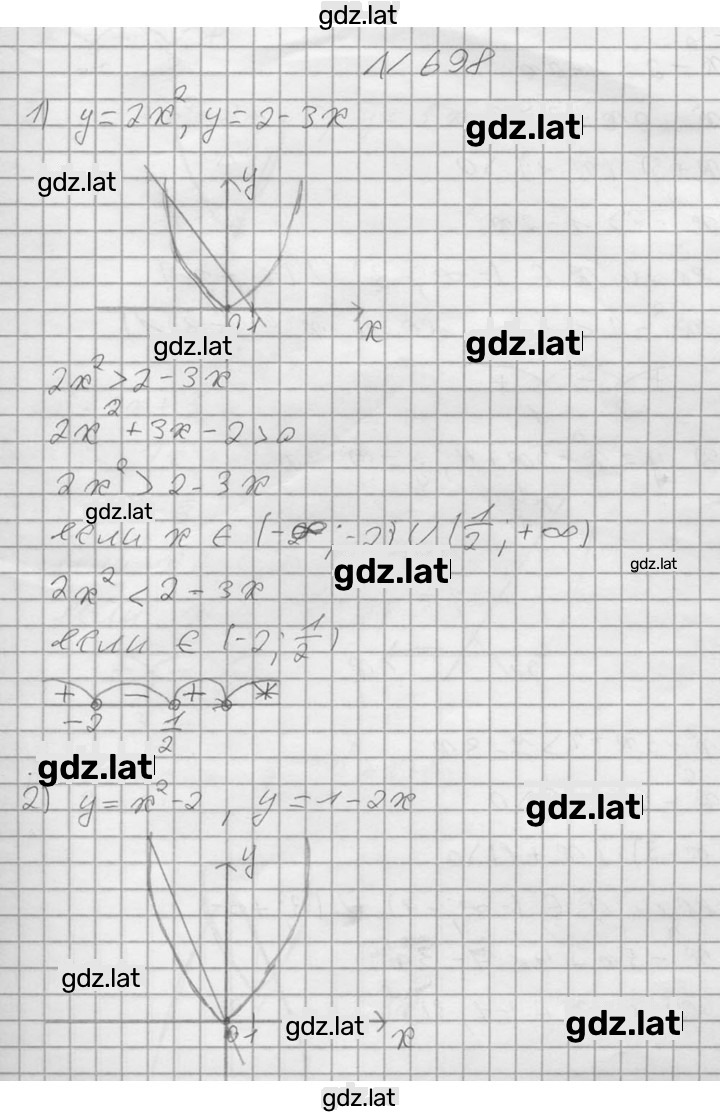 gdz.lat
№ 698
1) y = 2x², y = 2 - 3x
gdz.lat
gdz.lat
y
0 1
x
gdz.lat
gdz.lat
2x² > 2 - 3x
2x² + 3x - 2 > 0
2x² > 2 - 3x
gdz.lat
если x ∈ (-∞; -2) ∪ (1/2; +∞)
gdz.lat
gdz.lat
2x² < 2 - 3x
если ∈ (-2; 1/2)
+ - + *
-2 1/2
gdz.lat
2) y = x² - 2, y = 1 - 2x
gdz.lat
y
gdz.lat
0 1
gdz.lat
x
gdz.lat
gdz.lat